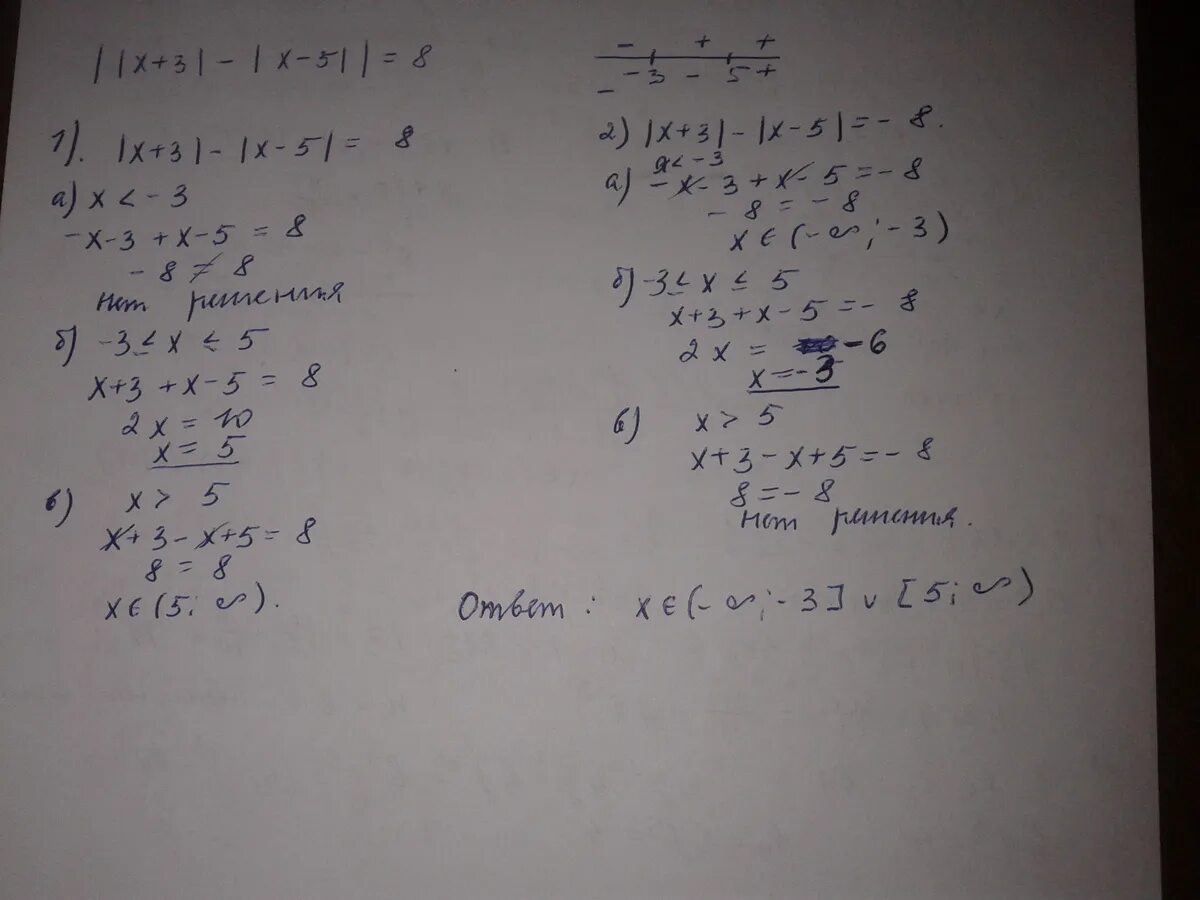 ||x+3|-|x-5||=8
- + +
-3 - 5 +
-
1). |x+3|-|x-5|= 8
а) x < -3
-x-3+x-5 = 8
-8 ≠ 8
нет решения
б) -3 ≤ x ≤ 5
x+3+x-5 = 8
2x = 10
x = 5
в) x > 5
x+3-x+5=8
8 = 8
x∈(5; ∞).
2) |x+3|-|x-5|=-8.
x<-3
а) -x-3+x-5=-8
-8 = -8
x∈(-∞;-3)
б) -3 ≤ x ≤ 5
x+3+x-5=-8
2x = -6
x=-3
в) x > 5
x+3-x+5=-8
8=-8
нет решения.
Ответ: x∈(-∞;-3]∨[5;∞)